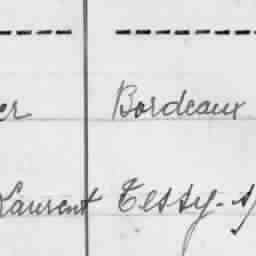 er Bordeaux
Laurent Cessy-s/